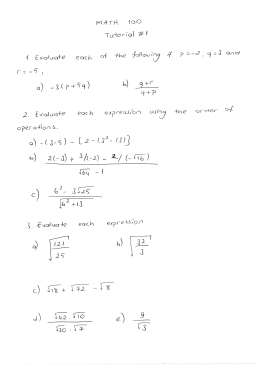 MATH 100
Tutorial #1
1. Evaluate each of the following if p=-2, q=3 and
r=-5,
a) -3(p+5q) b) (q+r)/(q+p)
2. Evaluate each expression using the order of
operations.
a) -(3-5) - [2-(3²-13)]
b) (2(-3) + 3/(-2) - 2/(-√16))/(√64 - 1)
c) (6² - 3√25)/√(6²+13)
3. Evaluate each expression
a) √(121/25) b) √(32/3)
c) √18 + √72 - √8
d) (√42 · √10)/(√30 · √7) e) 9/√3